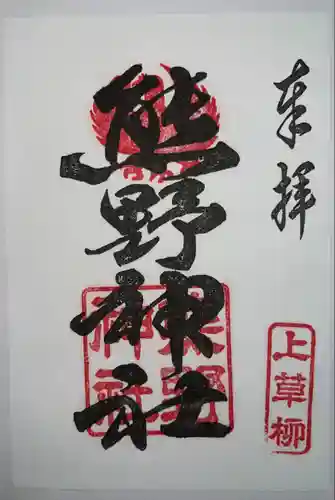 奉拝
熊野神社
熊野
神社
上草柳